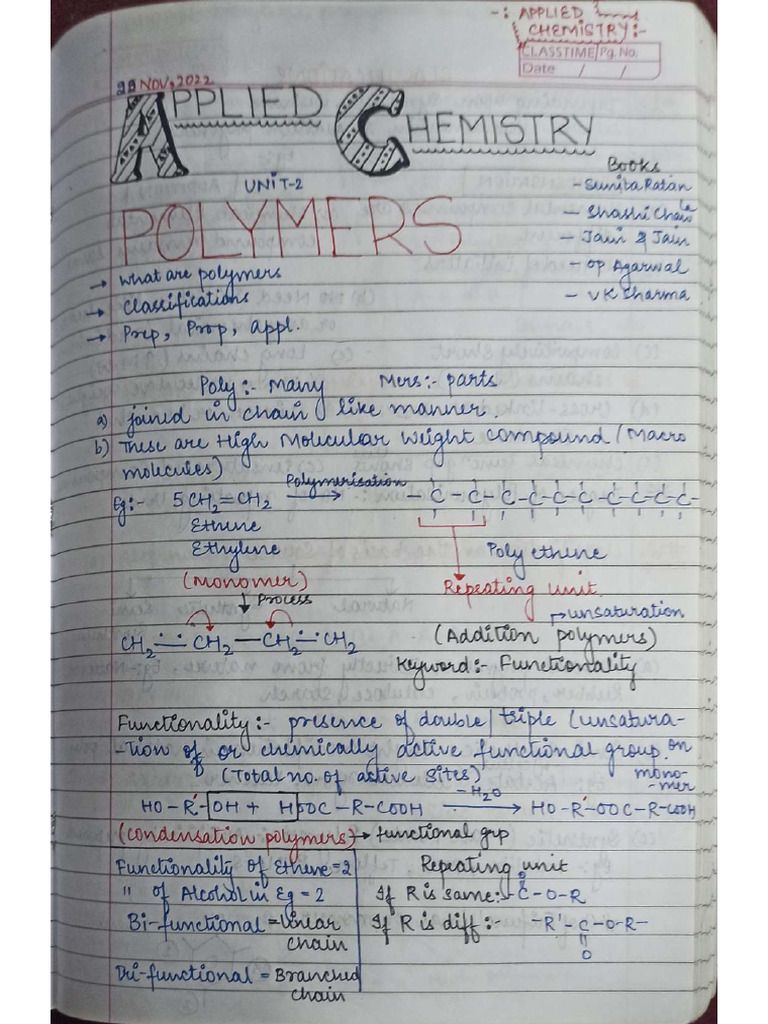 -: APPLIED
CHEMISTRY:-
CLASSTIME Pg. No.
Date / /
29 NOV, 2022
APPLIED CHEMISTRY
Books
UNIT-2
- Sunita Ratan
POLYMERS
- Shashi Chawla
- Jain & Jain
→ what are polymers
- OP Agarwal
→ Classifications
- VK Sharma
→ Prep, Prop, appl.
Poly :- Many Mers:- parts
a) joined in chain like manner.
b) These are High Molecular weight compound (Macro
molecules)
Eg:- 5CH2=CH2 Polymerisation → -C-C-C-C-C-C-C-C-C-
Ethene
Ethylene
Poly ethene
(Monomer)
Repeating unit.
↓ Process
→ unsaturation
CH2 ∸∸ CH2 — CH2 ∸∸ CH2
(Addition polymers)
Keyword:- Functionality
Functionality :- presence of double/triple (unsatura-
-tion of or chemically active functional group. on
mono-
mer
(Total no. of active sites)
HO-R'-OH + HOOC-R-COOH -H2O → HO-R'-OOC-R-COOH
(condensation polymers) → functional grp
Functionality of Ethene = 2
" of Alcohol in Eg = 2
Bi-functional = linear
chain
Tri-functional = Branched
chain
Repeating unit
If R is same:- -C-O-R
O
If R is diff :- -R'-C-O-R-
O